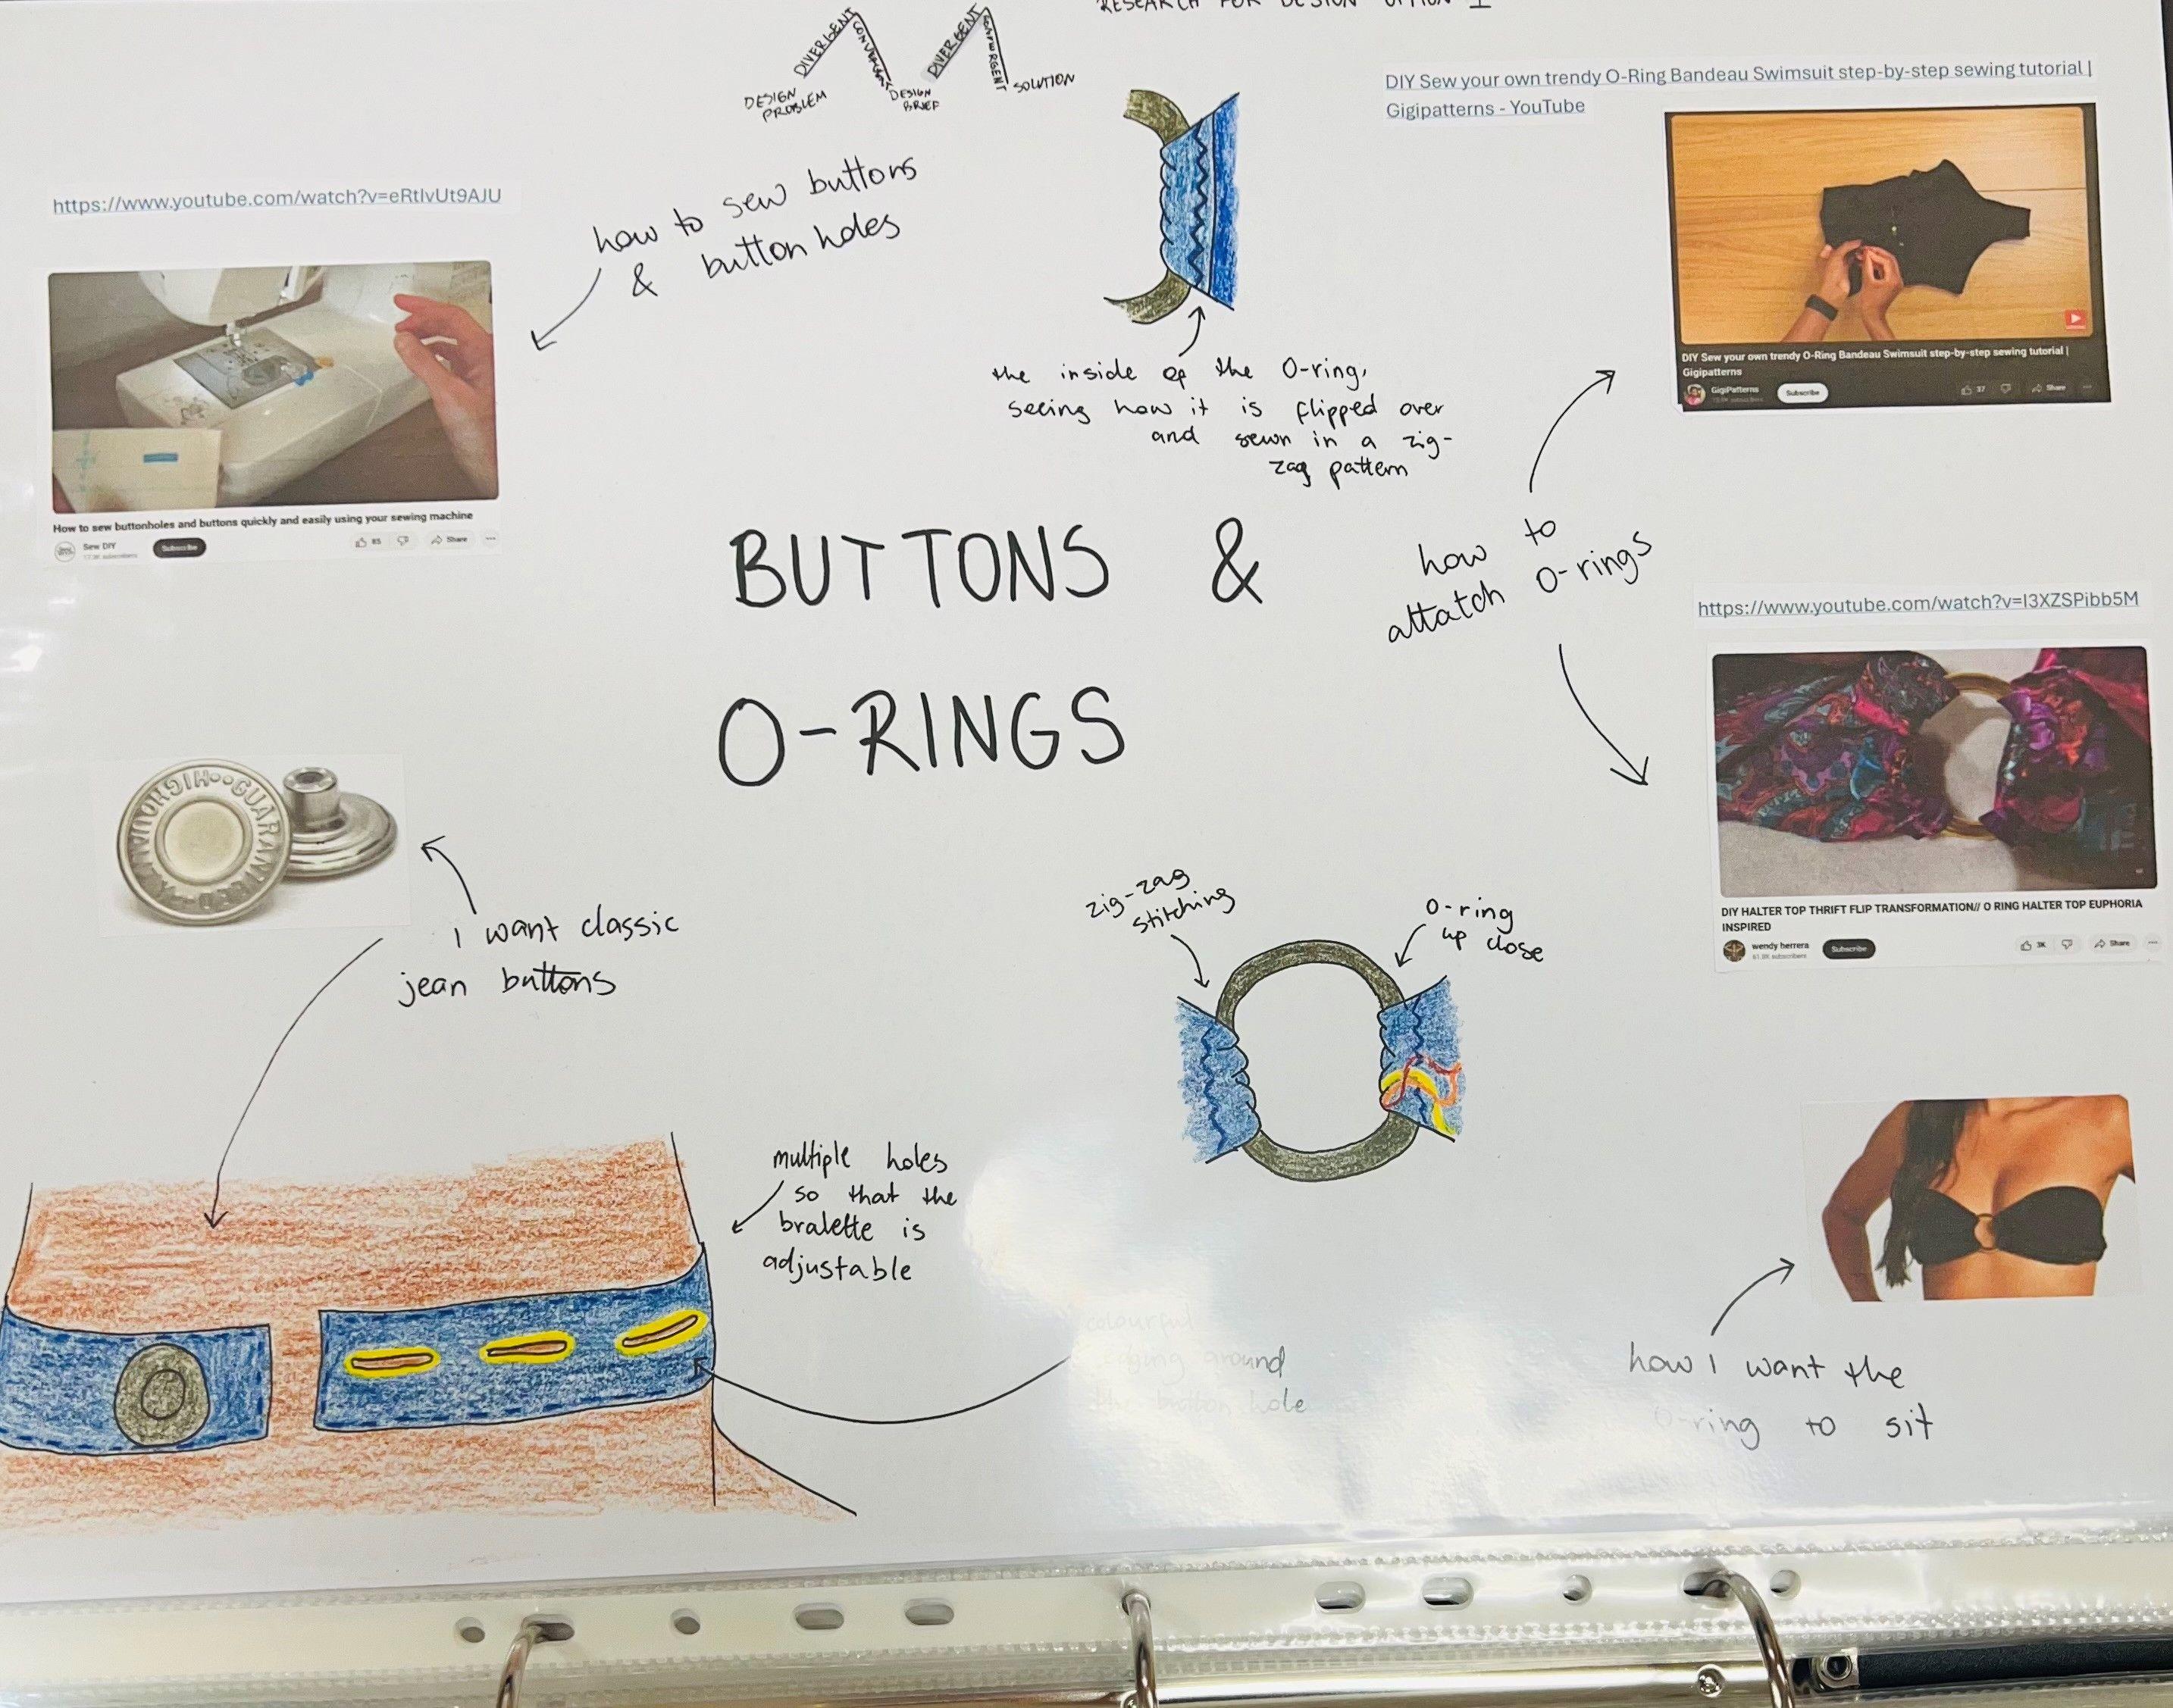 RESEARCH FOR DESIGN OPTION 1
DIVERGENT
CONVERGENT
DIVERGENT
CONVERGENT
DESIGN
PROBLEM
DESIGN
BRIEF
SOLUTION
DIY Sew your own trendy O-Ring Bandeau Swimsuit step-by-step sewing tutorial |
Gigipatterns - YouTube
https://www.youtube.com/watch?v=eRtlvUt9AJU
how to sew buttons
& button holes
How to sew buttonholes and buttons quickly and easily using your sewing machine
Sew DIY
Subscribe
85
Share
the inside of the O-ring,
seeing how it is flipped over
and sewn in a zig-
zag pattern
DIY Sew your own trendy O-Ring Bandeau Swimsuit step-by-step sewing tutorial |
Gigipatterns
GigiPatterns
Subscribe
37
Share
BUTTONS &
O-RINGS
how to
attatch O-rings
https://www.youtube.com/watch?v=I3XZSPibb5M
DIY HALTER TOP THRIFT FLIP TRANSFORMATION// O RING HALTER TOP EUPHORIA
INSPIRED
wendy herrera
61.8K subscribers
Subscribe
3K
Share
GUARANTY
i want classic
jean buttons
zig-zag
stitching
O-ring
up close
multiple holes
so that the
bralette is
adjustable
colourful
edging around
the button hole
how I want the
O-ring to sit